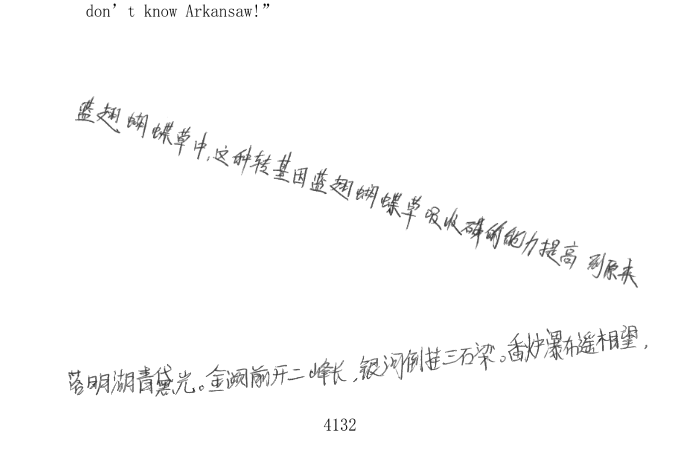 don’t know Arkansaw!”
蓝翅蝴蝶草中,这种转基因蓝翅蝴蝶草吸收磷的能力提高到原来
落明湖青黛光。金阙前开二峰长,银河倒挂三石梁。香炉瀑布遥相望,
4132